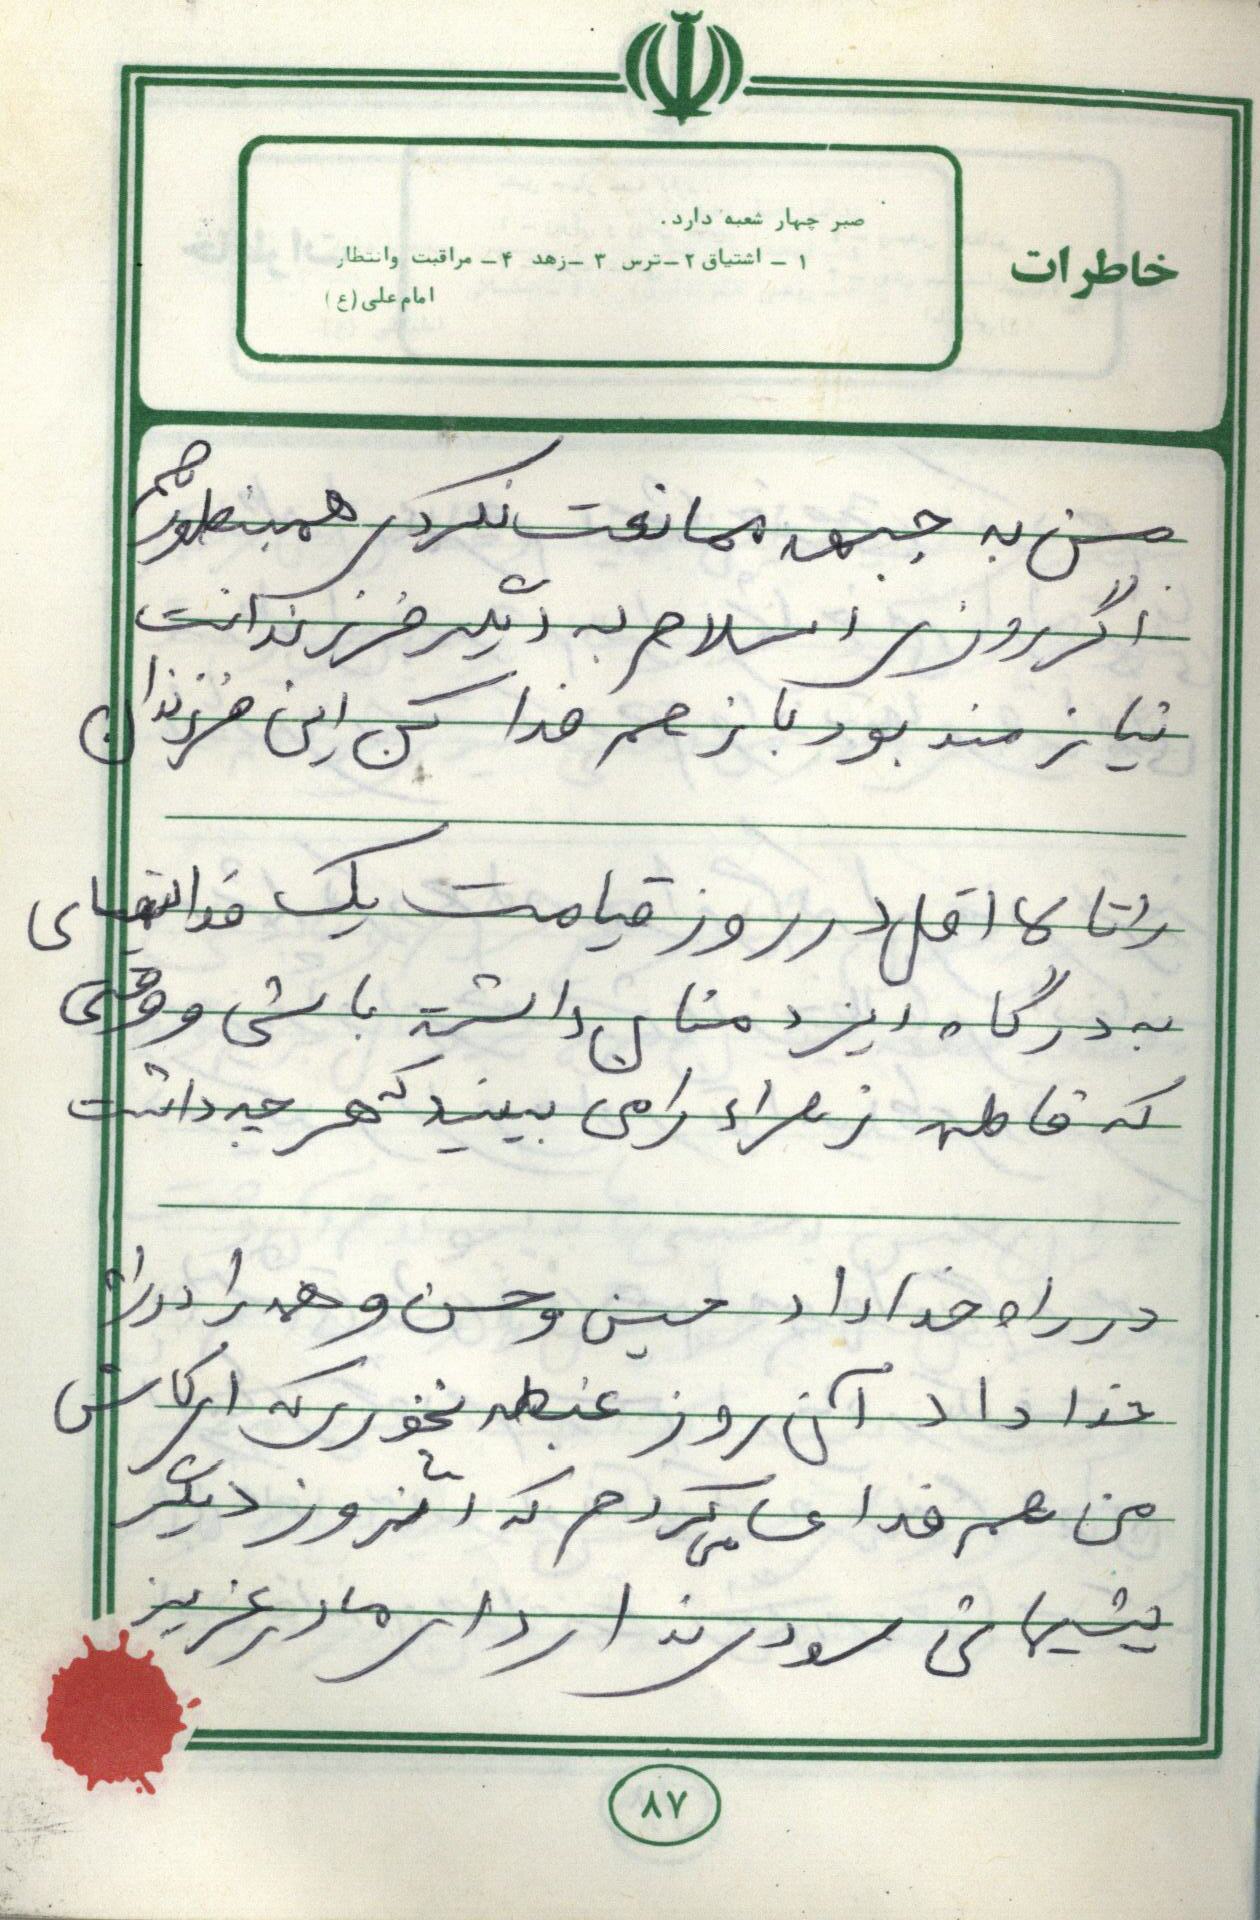 صبر چهار شعبه دارد.
۱ ـ اشتیاق ۲ ـ ترس ۳ ـ زهد ۴ ـ مراقبت وانتظار
امام علی (ع)
خاطرات
من به جبهه ممانعت نکردی همینطور هم
اگر روزی اسلام به دیگر فرزندانت
نیازمند بود باز هم فدا کن این فرزندان
را تا لااقل در روز قیامت یک فدائیهای
به درگاه ایزد منان داشته باشی و وقتی
که فاطمه زهراء را می بینید که هر چه داشت
در راه خدا داد حسین و حسن و همه را در راه
خدا داد آن روز غبطه نخوری که ای کاش
من هم فدا می کردم که آنروز دیگر
پشیمانی سودی ندارد ای مادر عزیز
۸۷